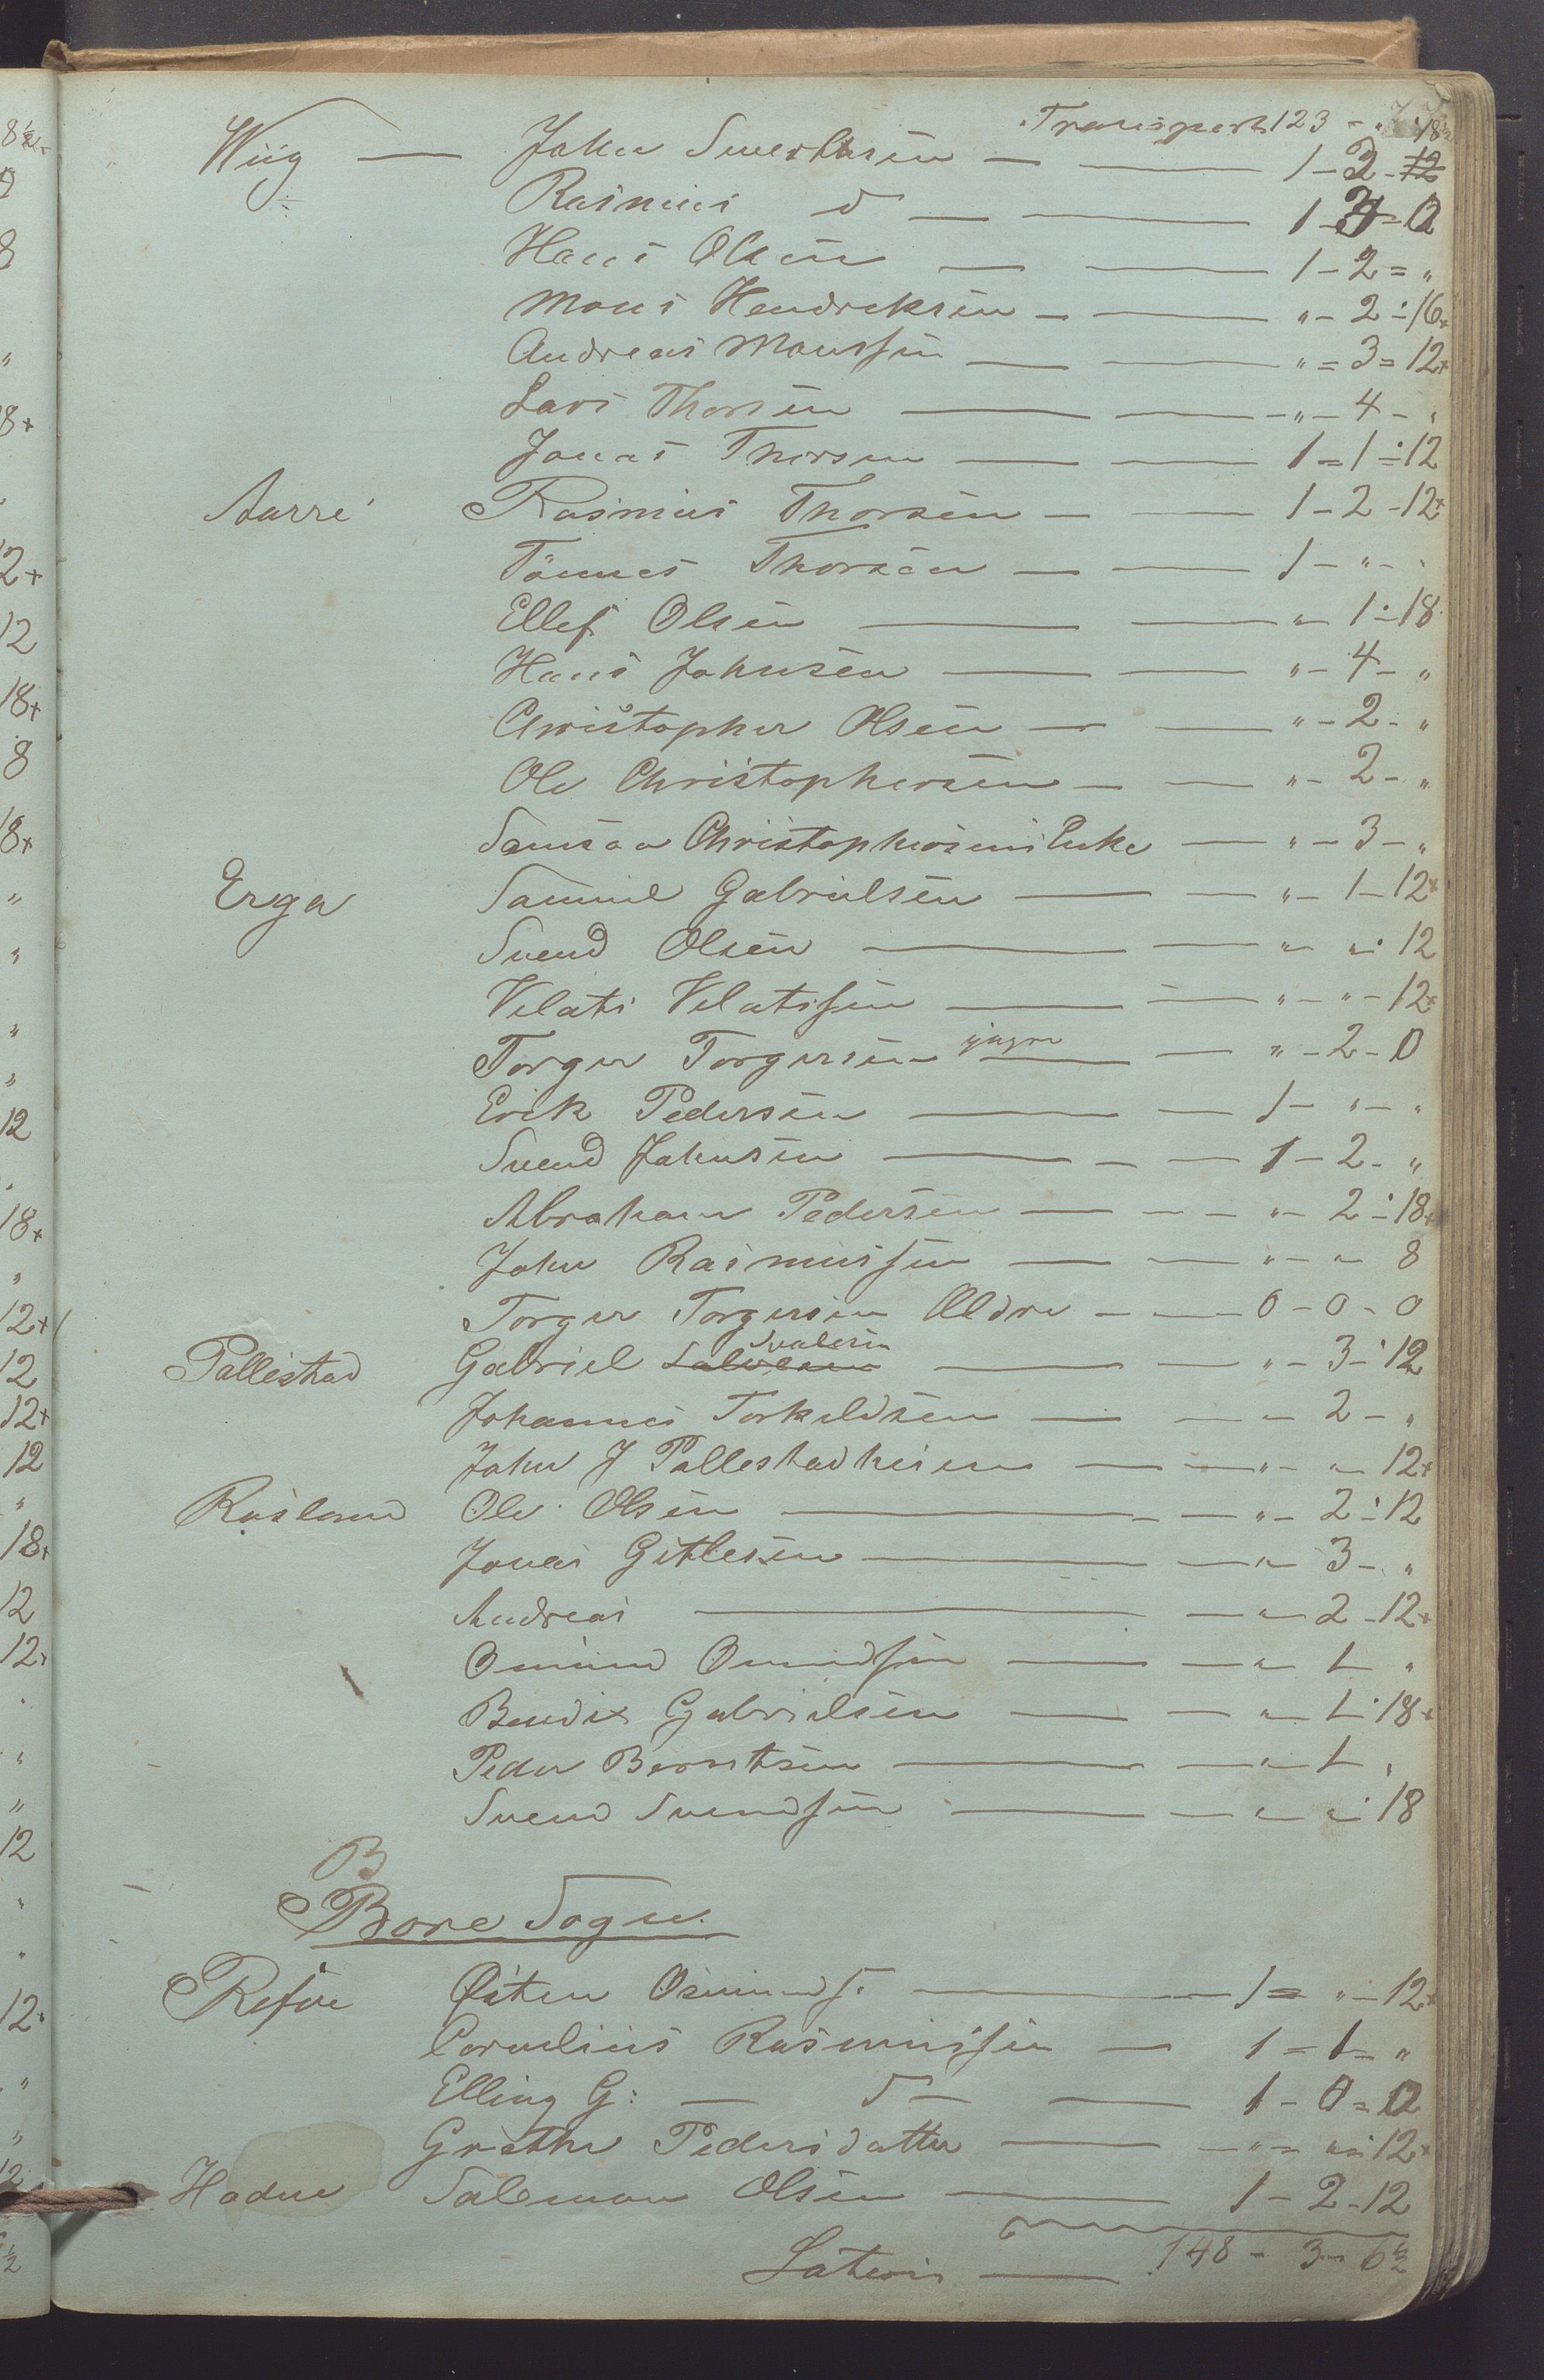 Transport 123 - "
Wiig — John Sivertsen — 1 - 3 - 12
Rasmus d — 1 - 3 = 12
Hans Olsen — 1 - 2 = "
Mons Hendreksen — " - 2 - 16+
Andreas Monssen — " = 3 = 12+
Lars Thorsen — " - 4 - "
Jonas Thorsen — 1 = 1 = 12
Aarre Rasmus Thorsen — 1 - 2 - 12+
Tönnes Thorsen — 1 - " - "
Ellef Olsen — " - 1 - 18
Hans Johnsen — " - 4 - "
Christopher Olsen — " - 2 - "
Ole Christophersen — " - 2 - "
Samson Christophersens Enke — " - 3 - "
Erga Samuel Gabrielsen — " - 1 - 12+
Svend Olsen — " - " - 12
Velats Velatssen — " - " - 12+
Torger Torgersen yngre — " - 2 - 0
Erik Pedersen — 1 - " - "
Svend Johnsen — 1 - 2 - "
Abraham Pedersen — " - 2 - 18+
John Rasmussen — " - " 8
Torger Torgersen Ældre — 0 - 0 - 0
Pallestad Gabriel Salvesen — " - 3 - 12
Johannes Torkildsen — " 2 - "
John J Pallestadheien — " - " 12+
Rosland Ole Olsen — " - 2 - 12
Jonas Gitlesen — " 3 - "
Andreas — " 2 - 12+
Osmund Osmundsen — " 1 "
Bendix Gabrielsen — " 1 - 18+
Peder Berntsen — " 1 "
Svend Svendsen — " " 18
B
Bore Sogn.
Refve Østen Osmunds. — 1 = " - 12+
Cornelius Rasmussen — 1 = 1 = "
Elling G: — d — 1 - 0 = 12
Grethe Pedersdatter — " = " - 12+
Hodne Salemon Olsen — 1 - 2 - 12
Lateris — 148 - 3 - 6½